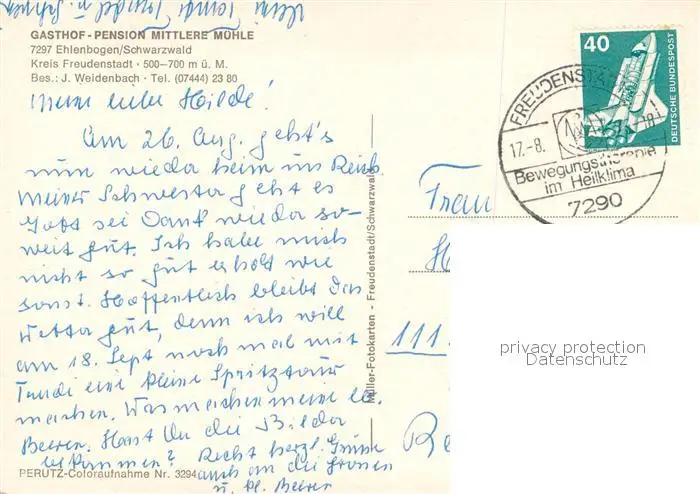 GASTHOF - PENSION MITTLERE MÜHLE
7297 Ehlenbogen/Schwarzwald
Kreis Freudenstadt · 500–700 m ü. M.
Bes.: J. Weidenbach · Tel. (07444) 23 80
Meine liebe Hilde!
Am 26. Aug. geht's
nun wieder heim ins Reich
meiner Schwester geht es
Gott sei Dank wieder so-
weit gut. Ich habe mich
nicht so gut erholt wie
sonst. Hoffentlich bleibt das
Wetter gut, denn ich will
am 18. Sept noch mal mit
Trudi eine kleine Spritztour
machen. Was machen meine lb.
Beeren. Hast Du die Bilder
bekommen? Recht herzl. Grüsse
auch an die Grossen
u. kl. Beeren
PERUTZ-Coloraufnahme Nr. 3294
Müller-Fotokarten - Freudenstadt/Schwarzwald
40
DEUTSCHE BUNDESPOST
FREUDENST
17.-8. 18
Bewegungstherapie
im Heilklima
7290
Frau
H
111
privacy protection
Datenschutz